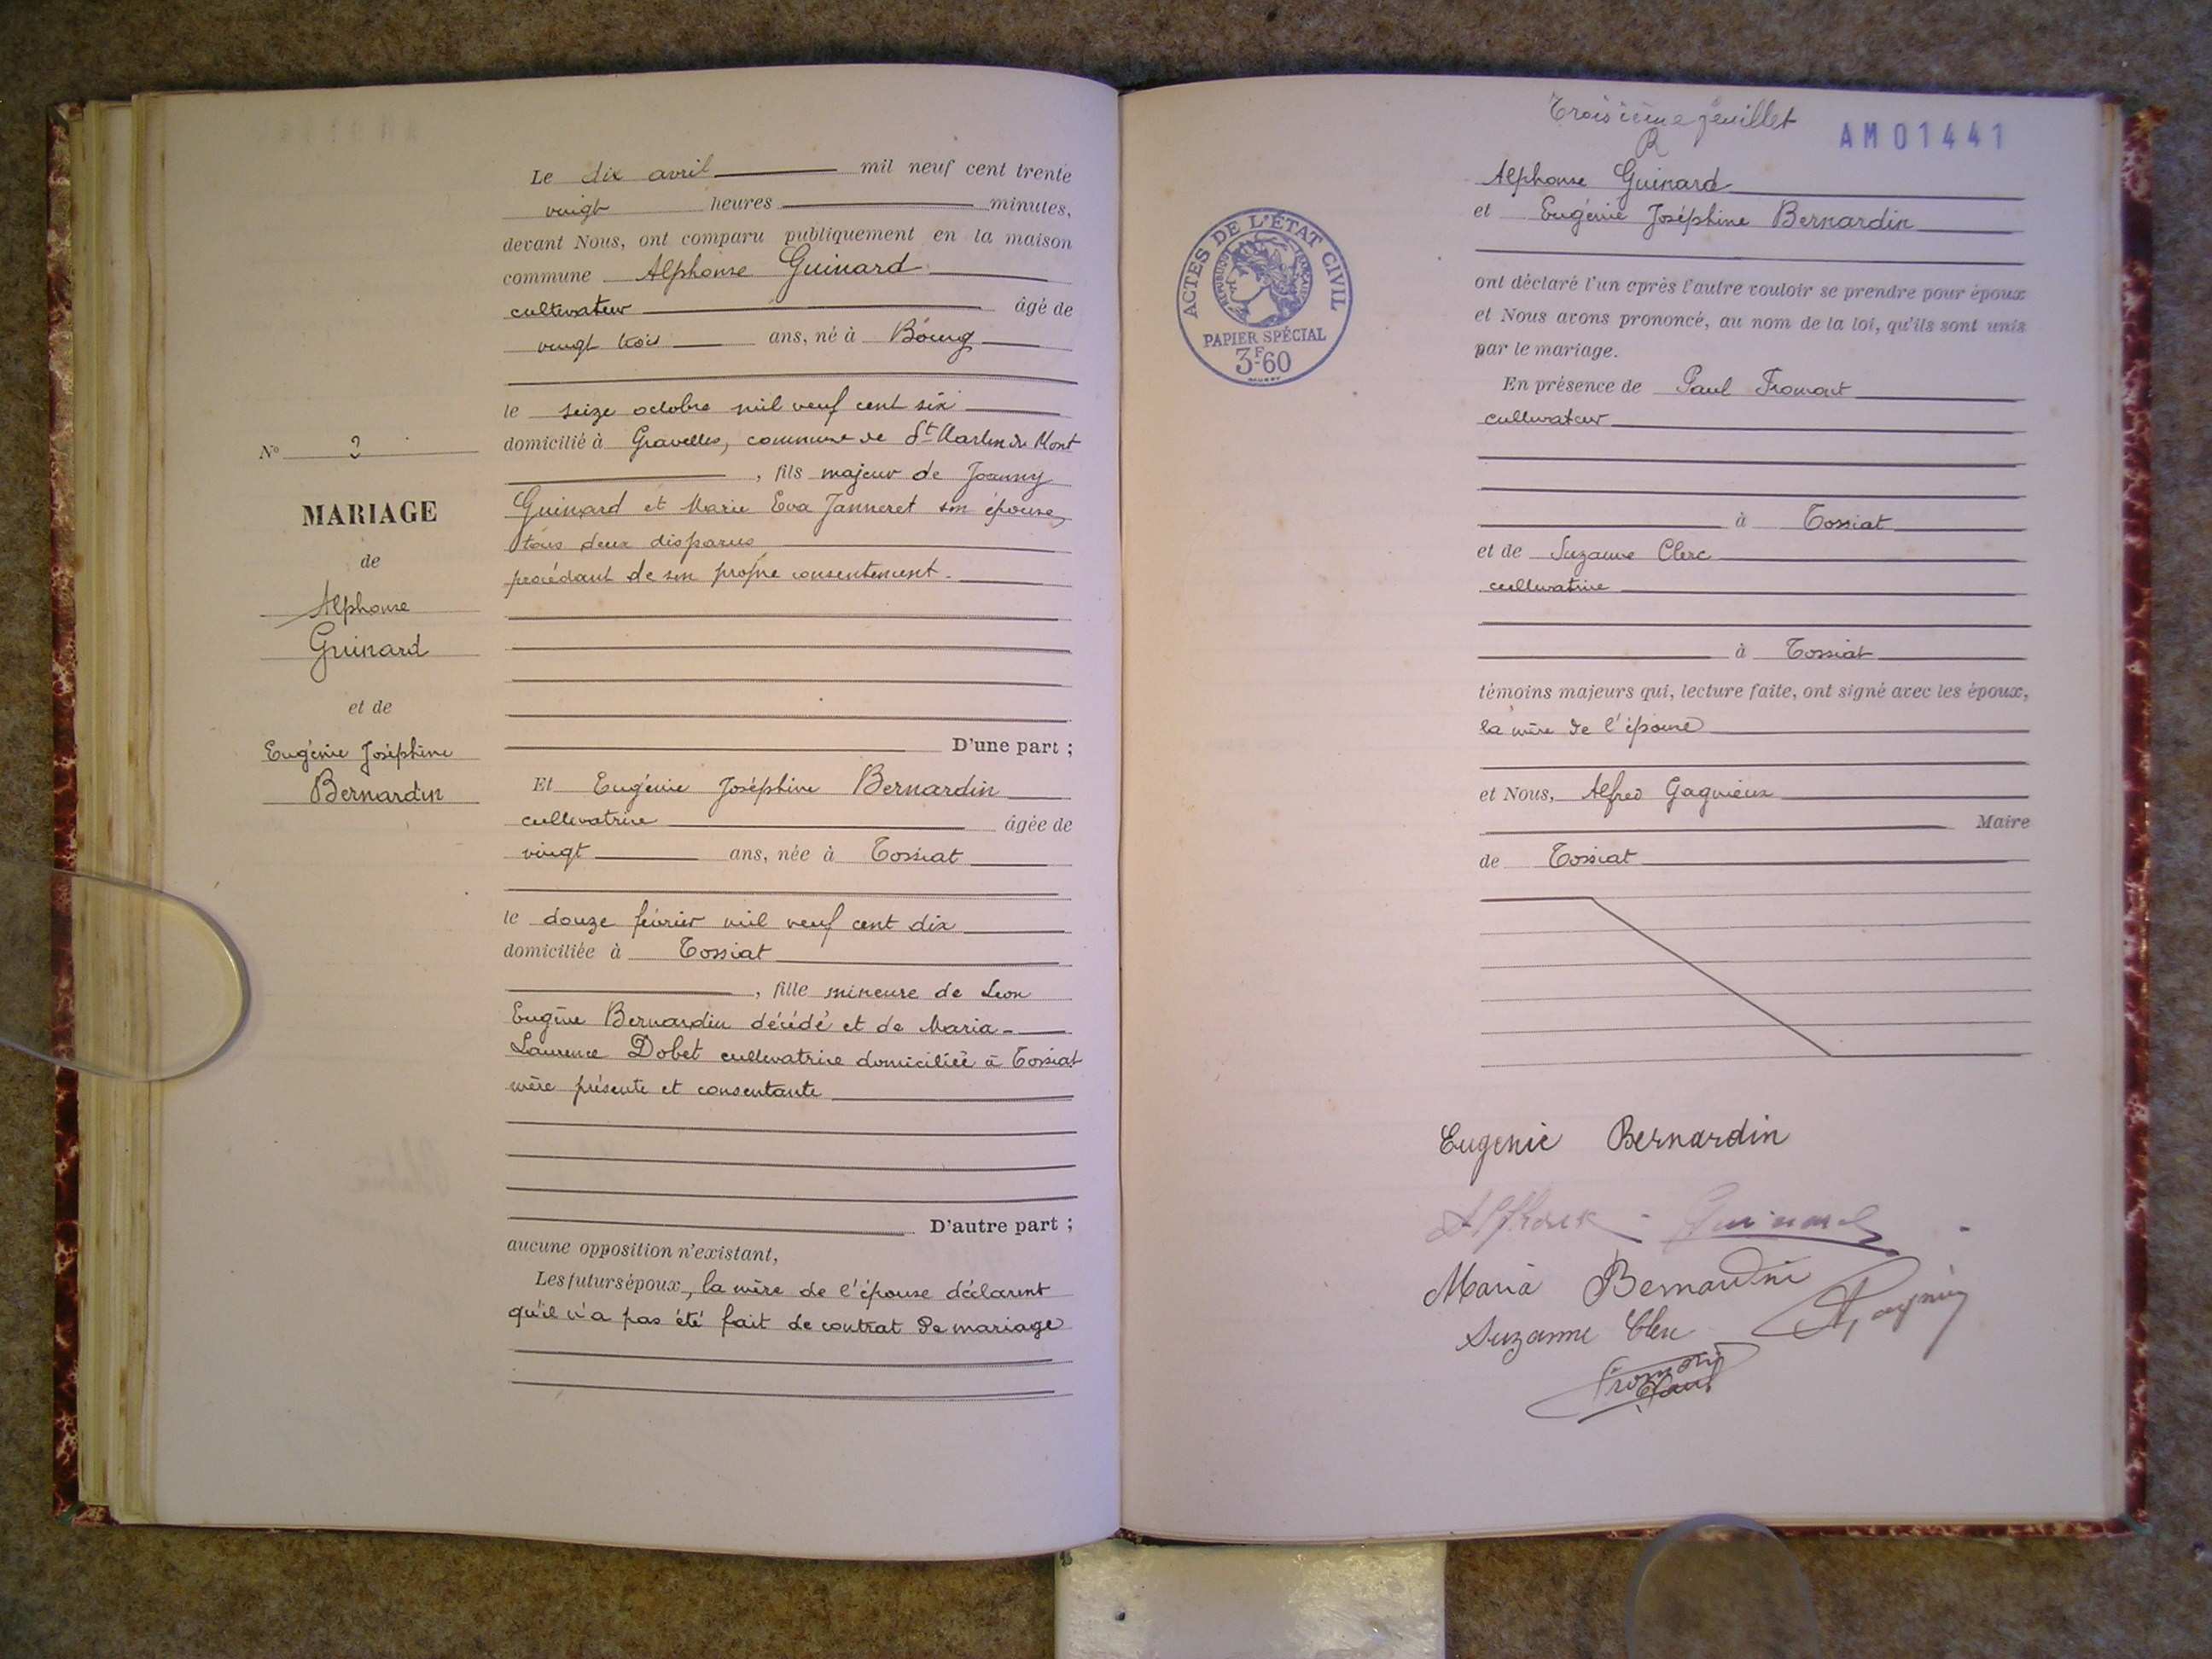 Le dix avril mil neuf cent trente
vingt heures minutes,
devant Nous, ont comparu publiquement en la maison
commune Alphonse Guinard
cultivateur âgé de
vingt trois ans, né à Bourg
le seize octobre mil neuf cent six
domicilié à Gravelles, commune de St Martin du Mont
, fils majeur de Joanny
Guinard et Marie Eva Janneret son épouse,
tous deux disparus
procédant de son propre consentement.
D'une part ;
Et Eugénie Joséphine Bernardin
cultivatrice âgée de
vingt ans, née à Tossiat
le douze février mil neuf cent dix
domiciliée à Tossiat
, fille mineure de Leon
Eugène Bernardin décédé et de Maria-
Laurence Dobet cultivatrice domiciliée à Tossiat
mère présente et consentante
D'autre part ;
aucune opposition n'existant,
Les futurs époux, la mère de l'épouse déclarent
qu'il n'a pas été fait de contrat de mariage
N°
MARIAGE
de
Alphonse
Guinard
et de
Eugénie Joséphine
Bernardin
Troisième feuillet
AM01441
ACTES DE L'ÉTAT CIVIL
RÉPUBLIQUE FRANÇAISE
PAPIER SPÉCIAL
3F60
Alphonse Guinard
et Eugénie Joséphine Bernardin
ont déclaré l'un après l'autre vouloir se prendre pour époux
et Nous avons prononcé, au nom de la loi, qu'ils sont unis
par le mariage.
En présence de Paul Fromont
cultivateur
à Tossiat
et de Suzanne Clerc
cultivatrice
à Tossiat
témoins majeurs qui, lecture faite, ont signé avec les époux,
la mère de l'épouse
et Nous, Alfred Gagnieux
Maire
de Tossiat
Eugenie Bernardin
Guinard
Maria Bernardin
Suzanne Clerc
Fromont
Paul